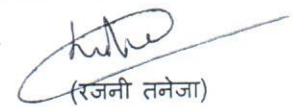 (रजनी तनेजा)